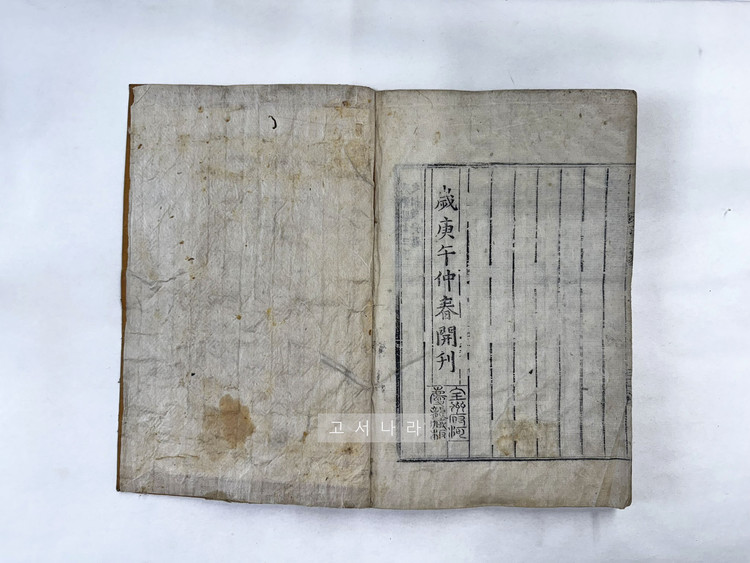 歲庚午仲春開刊
全州府河
慶龍藏板
고서나라